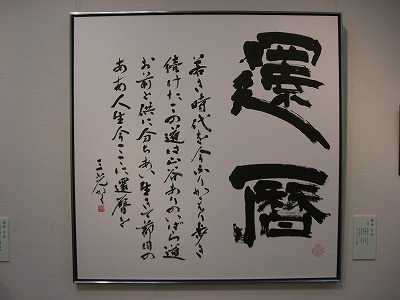 還暦
若き時代を今ふりかえり歩き
続けたこの道は山谷ありのいばら道
お前と供に分ちあい生きて節目の
ああ人生今ここに還暦を